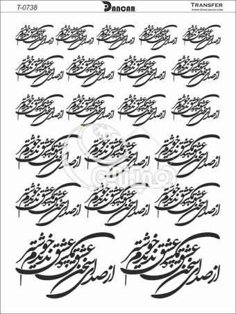 T-0738 DANCAR TRANSFER
از صدای سخن عشق ندیدم خوشتر از صدای سخن عشق ندیدم خوشتر از صدای سخن عشق ندیدم خوشتر از صدای سخن عشق ندیدم خوشتر از صدای سخن عشق ندیدم خوشتر
از صدای سخن عشق ندیدم خوشتر از صدای سخن عشق ندیدم خوشتر از صدای سخن عشق ندیدم خوشتر از صدای سخن عشق ندیدم خوشتر
از صدای سخن عشق ندیدم خوشتر از صدای سخن عشق ندیدم خوشتر از صدای سخن عشق ندیدم خوشتر از صدای سخن عشق ندیدم خوشتر
از صدای سخن عشق ندیدم خوشتر از صدای سخن عشق ندیدم خوشتر از صدای سخن عشق ندیدم خوشتر
از صدای سخن عشق ندیدم خوشتر از صدای سخن عشق ندیدم خوشتر از صدای سخن عشق ندیدم خوشتر
از صدای سخن عشق ندیدم خوشتر از صدای سخن عشق ندیدم خوشتر